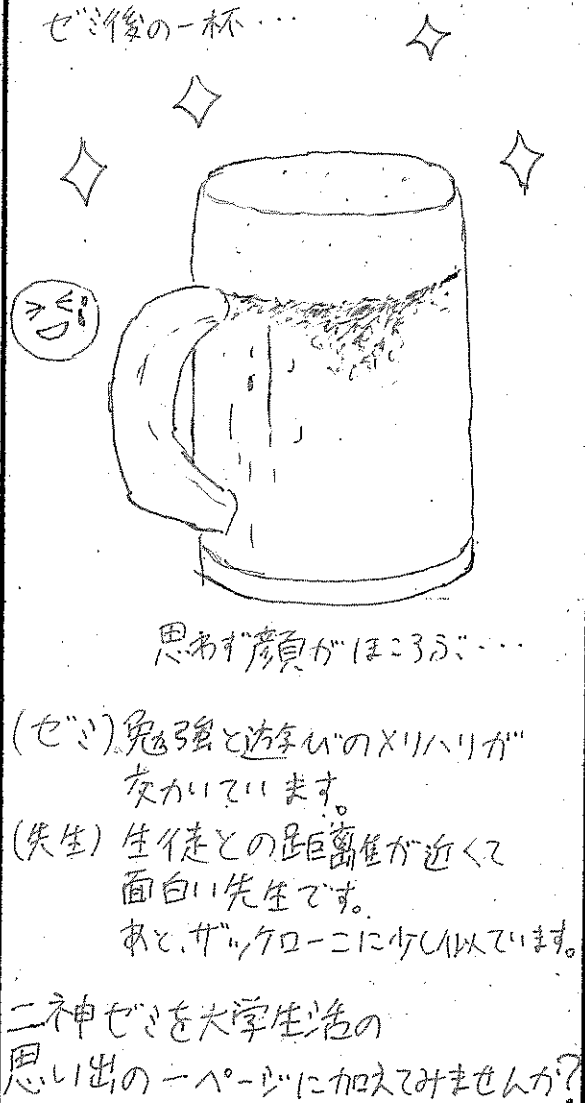 ゼミ後の一杯・・・
思わず顔がほころぶ・・・
(ゼミ)勉強と遊びのメリハリが
効いています。
(先生) 生徒との距離が近くて
面白い先生です。
あと、ザッケローニに少し似ています。
二神ゼミを大学生活の
思い出の一ページに加えてみませんか?